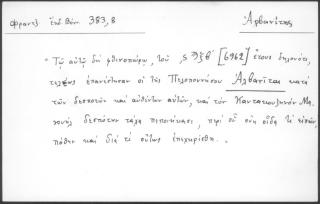 Φραντζ Έκδ. Βόν. 383, 8 Ἀρβανίτης
"Τῷ αὐτῷ δὴ φθινοπώρῳ, τοῦ ,ςϡξβ' [6962] ἔτους δηλονότι,
ἐπανέστησαν οἱ τῆς Πελοποννήσου Ἀλβανῖται κατὰ
τῶν δεσποτῶν καὶ αὐθέντων αὐτῶν, καὶ τὸν Καντακουζηνὸν Μα
νουὴλ δεσπότην τάχα πεποιήκασι, περὶ οὗ οὐκ οἶδα τί εἰπεῖν,
πόθεν καὶ διὰ τί οὕτως ἐπεχειρίσθη.